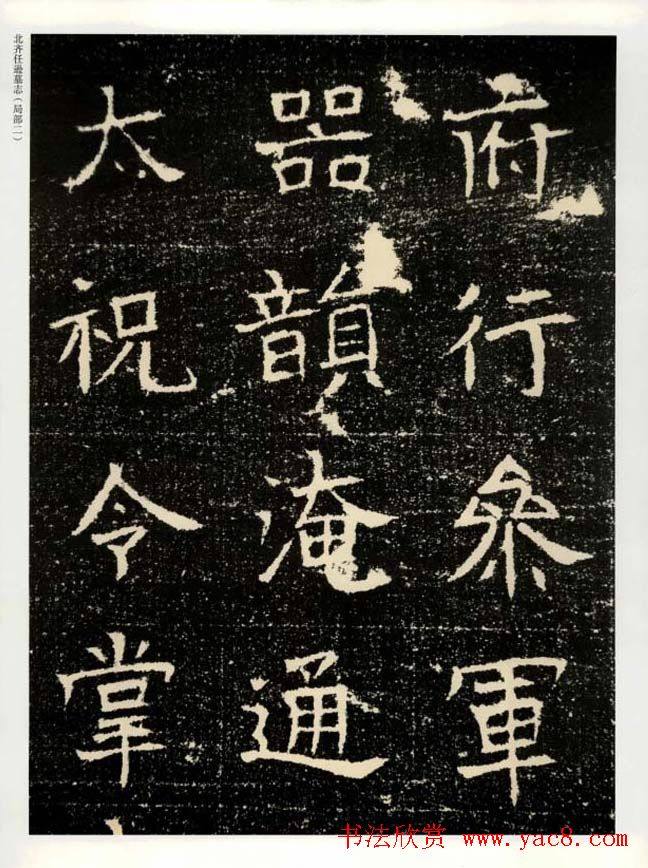 北齐任逊墓志（局部二）
府行叅軍
器韻淹通
太祝令掌
书法欣赏 www.yac8.com